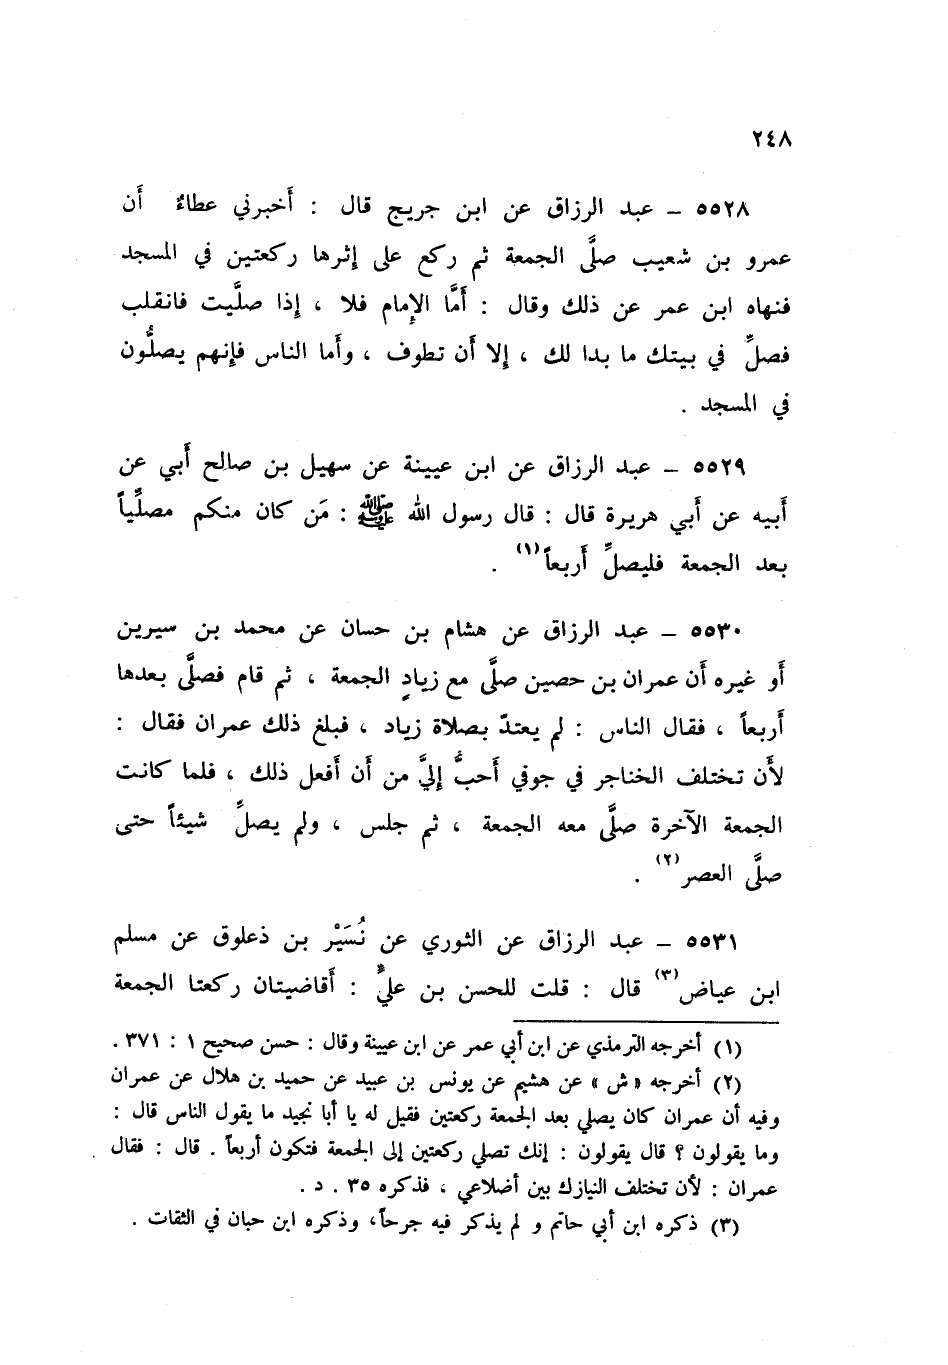 ٢٤٨
٥٥٢٨ – عبد الرزاق عن ابن جريج قال : أَخبرني عطاءٌ أَن
عمرو بن شعيب صلَّى الجمعة ثم ركع على إِثرها ركعتين في المسجد
فنهاه ابن عمر عن ذلك وقال : أَمَّا الإِمام فلا ، إِذا صلَّيت فانقلب
فصلِّ في بيتك ما بدا لك ، إِلا أَن تطوف ، وأَما الناس فإِنهم يصلُّون
في المسجد .
٥٥٢٩ – عبد الرزاق عن ابن عيينة عن سهيل بن صالح أَبي عن
أَبيه عن أَبي هريرة قال : قال رسول الله ﷺ : مَن كان منكم مصلِّياً
بعد الجمعة فليصلِّ أَربعاً(١) .
٥٥٣٠ – عبد الرزاق عن هشام بن حسان عن محمد بن سيرين
أَو غيره أَن عمران بن حصين صلَّى مع زيادٍ الجمعة ، ثم قام فصلَّى بعدها
أَربعاً ، فقال الناس : لم يعتدّ بصلاة زياد ، فبلغ ذلك عمران فقال :
لأَن تختلف الخناجر في جوفي أَحبُّ إِليَّ من أَن أَفعل ذلك ، فلما كانت
الجمعة الآخرة صلَّى معه الجمعة ، ثم جلس ، ولم يصلِّ شيئاً حتى
صلَّى العصر(٢) .
٥٥٣١ – عبد الرزاق عن الثوري عن نُسَيْر بن ذعلوق عن مسلم
ابن عياض(٣) قال : قلت للحسن بن عليٍّ : أَقاضيتان ركعتا الجمعة
(١) أخرجه الترمذي عن ابن أبي عمر عن ابن عيينة وقال : حسن صحيح ١ : ٣٧١ .
(٢) أخرجه « ش » عن هشيم عن يونس بن عبيد عن حميد بن هلال عن عمران
وفيه أن عمران كان يصلي بعد الجمعة ركعتين فقيل له يا أبا نجيد ما يقول الناس قال :
وما يقولون ؟ قال يقولون : إنك تصلي ركعتين إلى الجمعة فتكون أربعاً . قال : فقال
عمران : لأن تختلف النيازك بين أضلاعي ، فذكره ٣٥ . د .
(٣) ذكره ابن أبي حاتم و لم يذكر فيه جرحاً، وذكره ابن حبان في الثقات .